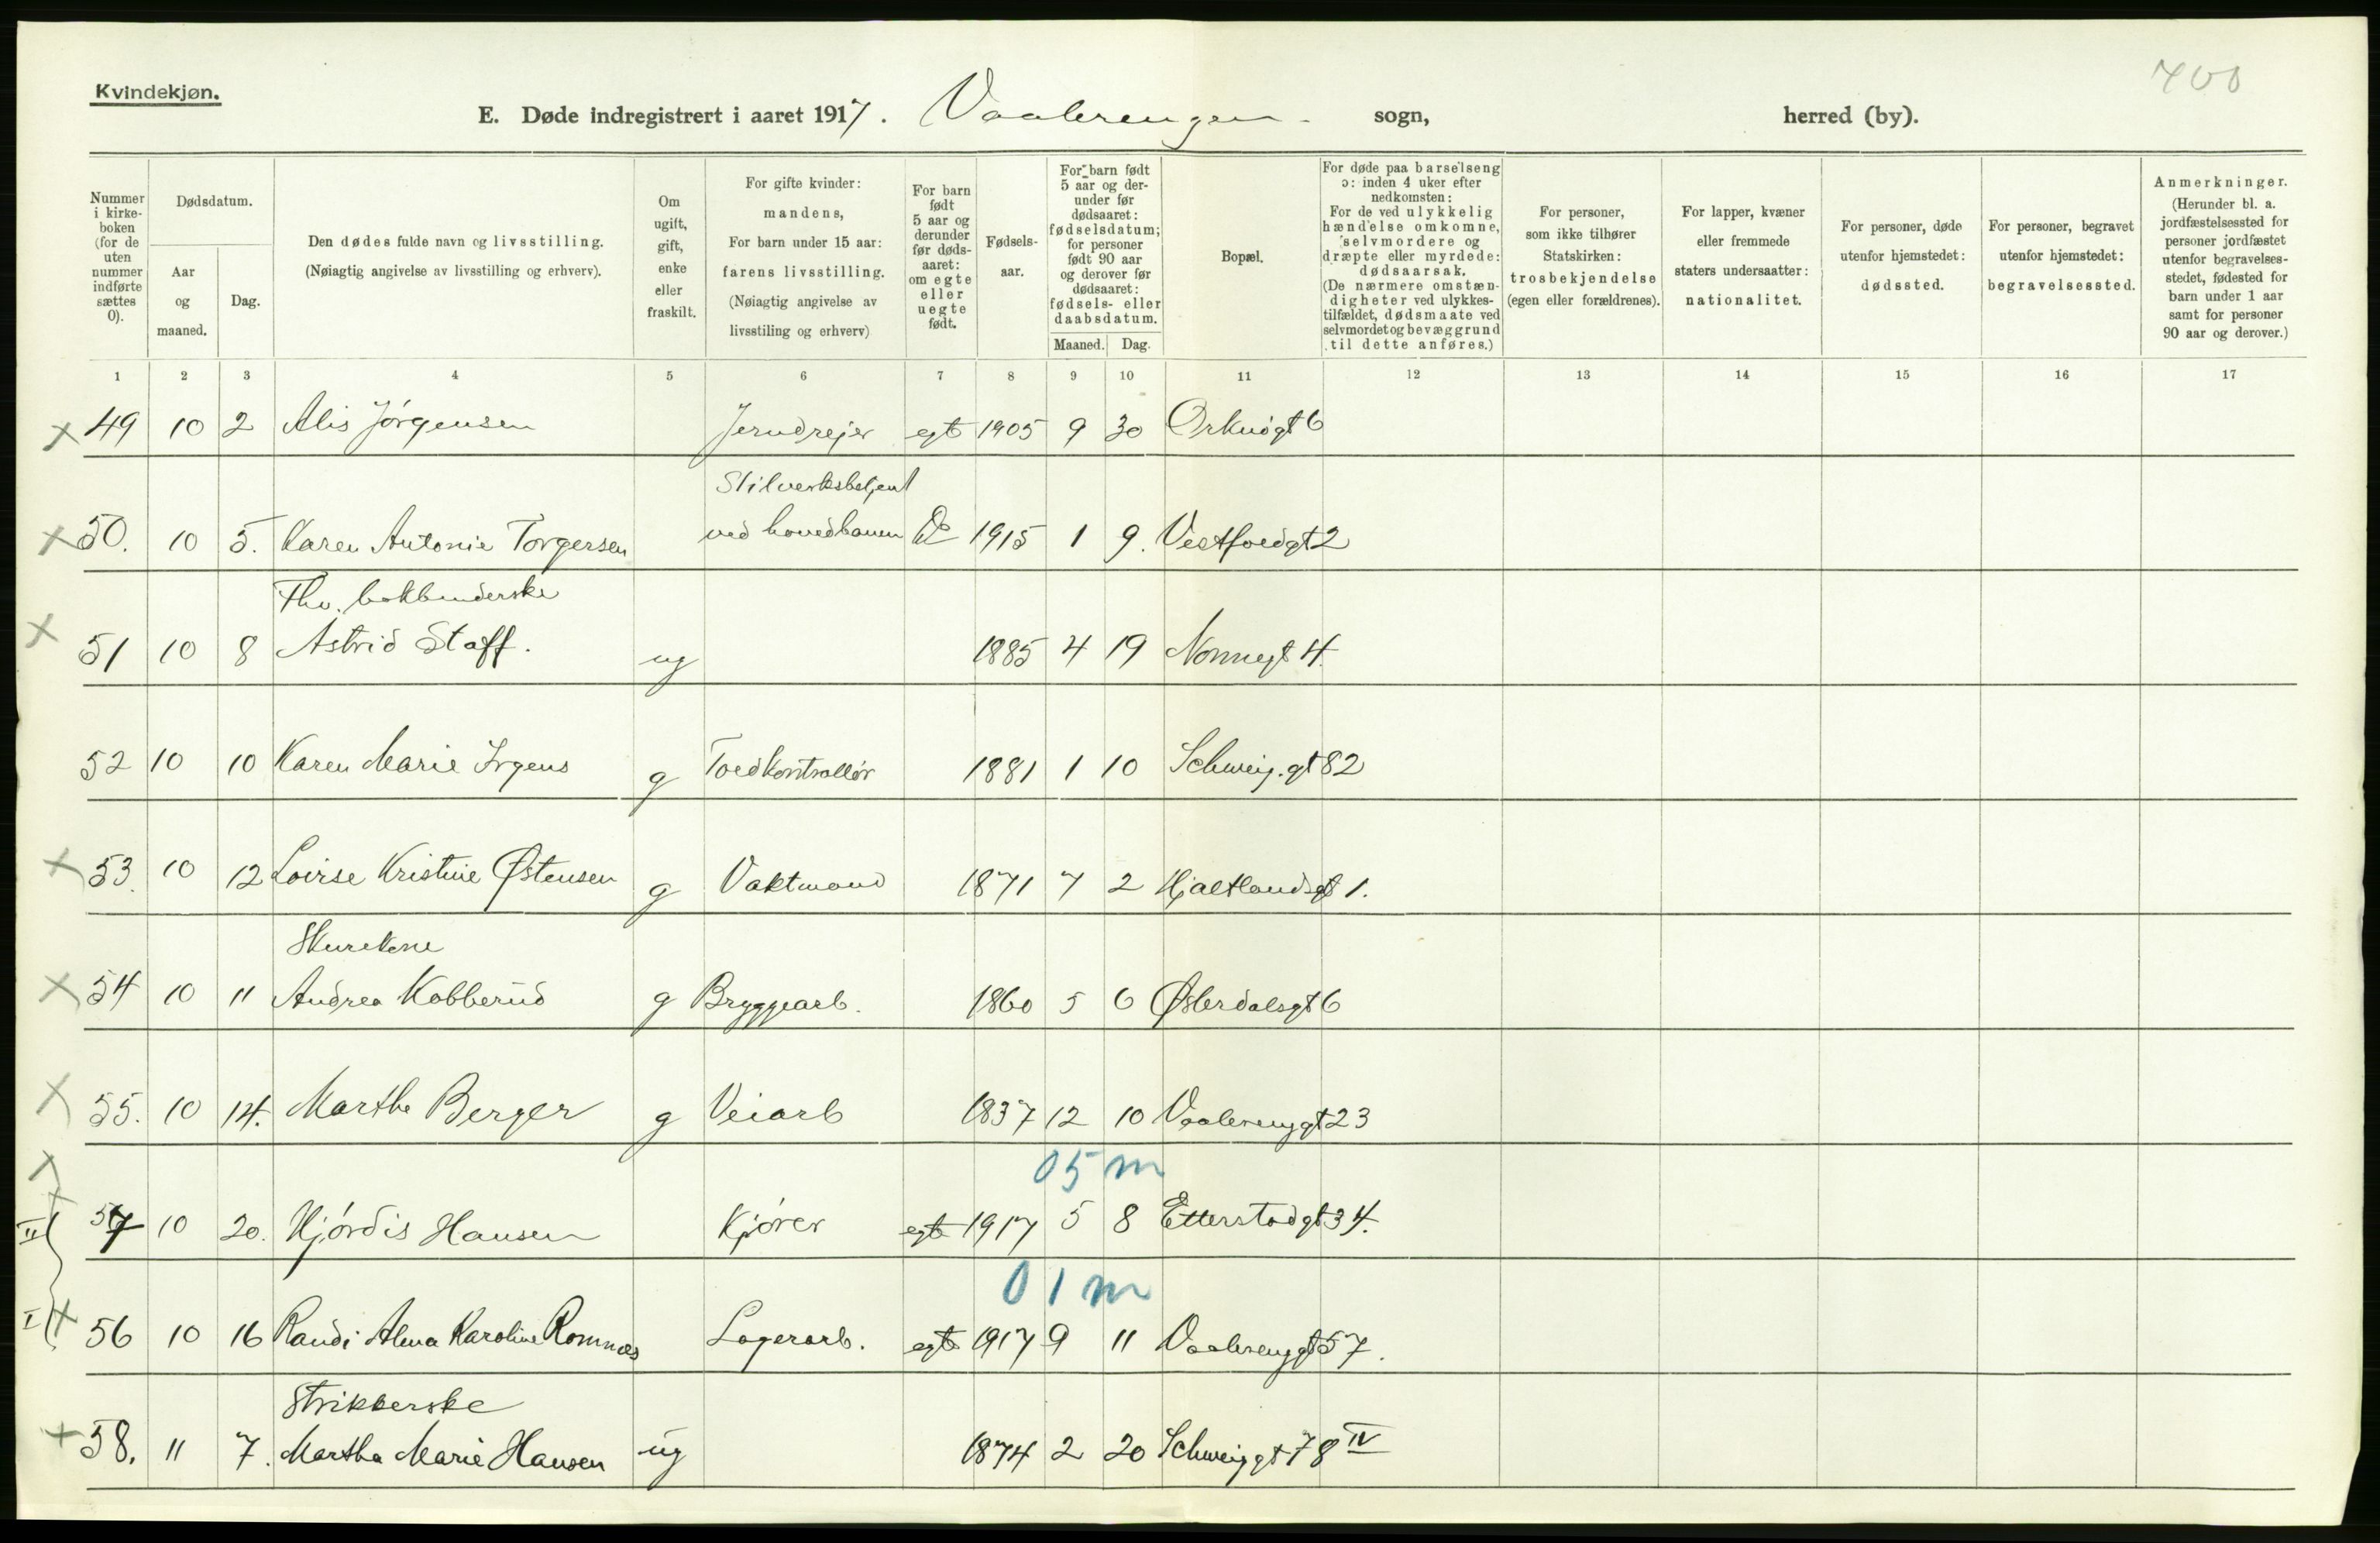 Kvindekjøn.
700
E. Døde indregistrert i aaret 1917. Vaalerengen sogn, herred (by).
Nummer i kirkeboken (for de uten nummer indførte sættes 0).
Dødsdatum.
Aar og maaned.
Dag.
Den dødes fulde navn og livsstilling.
(Nøiagtig angivelse av livsstilling og erhverv).
Om ugift, gift, enke eller fraskilt.
For gifte kvinder: mandens,
For barn under 15 aar: farens livsstilling.
(Nøiagtig angivelse av livsstiling og erhverv)
For barn født 5 aar og derunder før dødsaaret: om egte eller uegte født.
Fødselsaar.
For barn født 5 aar og derunder før dødsaaret: fødselsdatum; for personer født 90 aar og derover før dødsaaret: fødsels- eller daabsdatum.
Maaned. Dag.
Bopæl.
For døde paa barselseng ɔ: inden 4 uker efter nedkomsten:
For de ved ulykkelig hændelse omkomne, selvmordere og dræpte eller myrdede: dødsaarsak.
(De nærmere omstændigheter ved ulykkestilfældet, dødsmaate ved selvmordet og bevæggrund til dette anføres.)
For personer, som ikke tilhører Statskirken: trosbekjendelse (egen eller forældrenes).
For lapper, kvæner eller fremmede staters undersaatter: nationalitet.
For personer, døde utenfor hjemstedet: dødssted.
For personer, begravet utenfor hjemstedet: begravelsessted.
Anmerkninger.
(Herunder bl. a. jordfæstelsessted for personer jordfæstet utenfor begravelsesstedet, fødested for barn under 1 aar samt for personer 90 aar og derover.)
1 2 3 4 5 6 7 8 9 10 11 12 13 14 15 16 17
x 49 10 2 Alis Jørgensen Jerndrejer egt 1905 9 30 Orknøgt 6
Stilverksbetjent
x 50. 10 5. Karen Antonie Torgersen ved hovedbanen Do 1915 1 9. Vestfoldgt 2
Fhv. bokbinderske
x 51 10 8 Astrid Staff. ug 1885 4 19 Nonnegt 4.
52 10 10 Karen Marie Irgens g Toldkontrollør 1881 1 10 Schweig.gt 82
x 53. 10 12 Lovise Kristine Østensen g Vaktmand 1871 7 2 Hjaltlandsgt 1.
Skurekone
x 54 10 11 Andrea Kobberud g Bryggearb. 1860 5 6 Østerdalsgt 6
x 55. 10 14. Marthe Berger g Veiarb 1837 12 10 Vaalerenggt 23
05 m
x
x II 57 10 20. Hjørdis Hansen Kjører egt 1917 5 8 Etterstadgt 34.
01 m
I x 56 10 16 Randi Alma Karoline Romnæs Lagerarb. egt 1917 9 11 Vaalerenggt 57.
Strikkerske
x 58. 11 7. Martha Marie Hansen ug 1874 2 20 Schweiggt 78 IV